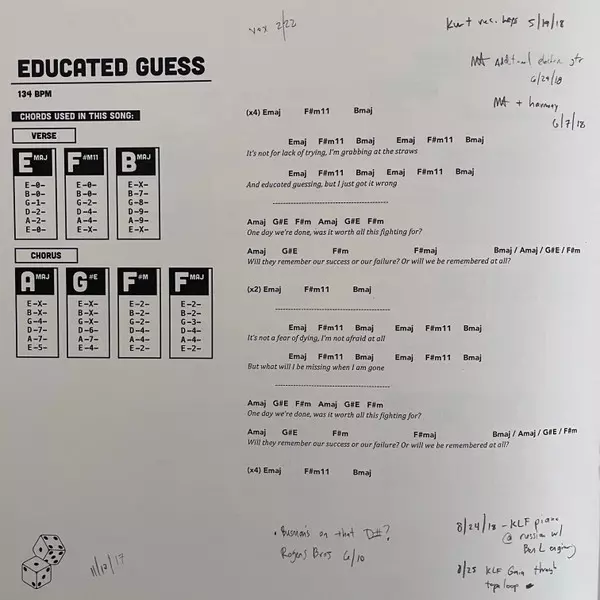 vox 2/22
Kurt rec. keys 5/19/18
EDUCATED GUESS
MA Additional electric gtr
6/29/18
134 BPM
MA + harmony
6/7/18
CHORDS USED IN THIS SONG:
VERSE
EMAJ F#M11 BMAJ
E-0- E-0- E-X-
B-0- B-0- B-7-
G-1- G-2- G-8-
D-2- D-4- D-9-
A-2- A-4- A-9-
E-0- E-X- E-X-
CHORUS
AMAJ G#E F#M FMAJ
E-X- E-X- E-2- E-2-
B-X- B-X- B-2- B-2-
G-4- G-X- G-2- G-3-
D-7- D-6- D-4- D-4-
A-7- A-7- A-4- A-4-
E-5- E-4- E-2- E-2-
(x4) Emaj F#m11 Bmaj
Emaj F#m11 Bmaj Emaj F#m11 Bmaj
It's not for lack of trying, I'm grabbing at the straws
Emaj F#m11 Bmaj Emaj F#m11 Bmaj
And educated guessing, but I just got it wrong
Amaj G#E F#m Amaj G#E F#m
One day we're done, was it worth all this fighting for?
Amaj G#E F#m F#maj Bmaj / Amaj / G#E / F#m
Will they remember our success or our failure? Or will we be remembered at all?
(x2) Emaj F#m11 Bmaj
Emaj F#m11 Bmaj Emaj F#m11 Bmaj
It's not a fear of dying, I'm not afraid at all
Emaj F#m11 Bmaj Emaj F#m11 Bmaj
But what will I be missing when I am gone
Amaj G#E F#m Amaj G#E F#m
One day we're done, was it worth all this fighting for?
Amaj G#E F#m F#maj Bmaj / Amaj / G#E / F#m
Will they remember our success or our failure? Or will we be remembered at all?
(x4) Emaj F#m11 Bmaj
11/12/17
on that D#?
Rogers Bros 6/10
8/24/18 - KLF piano
@ russian w/
Ben L
8/25 KLF Gain through
tape loop